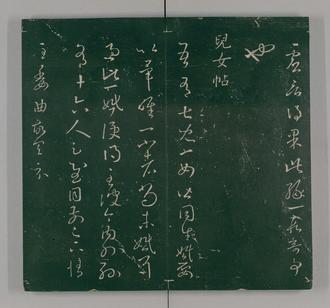 得果此緣一段奇事
也
兒女帖
吾有七兒一女皆同生婚娶
以畢唯一小者尚未婚耳
過此一婚便得至彼今內外孫
有十六人足慰目前足下情
至委曲故具示